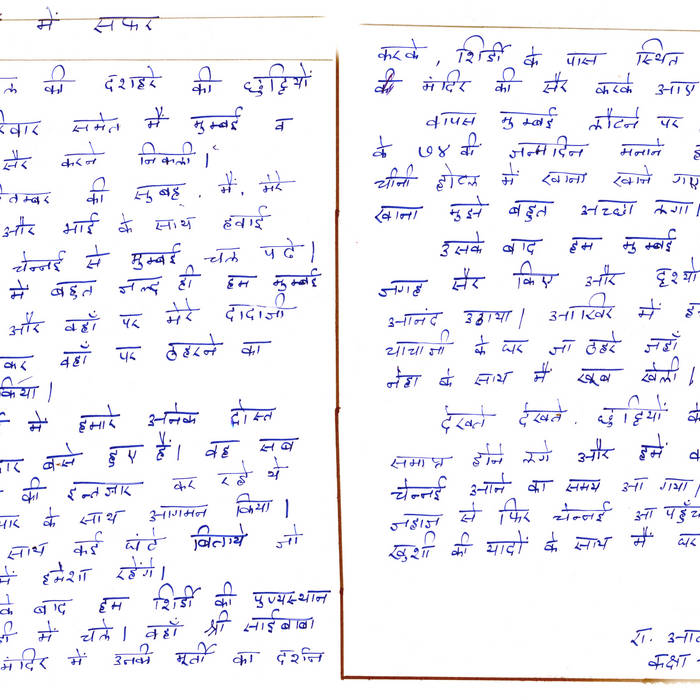 में सफर
की दशहरे की छुट्टियों
समेत मैं मुम्बई व
सैर करने निकली।
की सुबह, मैं, मेरे
और भाई के साथ हवाई
चेन्नई से मुम्बई चल पडे।
में बहुत जल्द ही हम मुम्बई
और वहाँ पर मेरे दादाजी
कर वहाँ पर ठहरने का
किया।
में हमारे अनेक दोस्त
बसे हुए हैं। वह सब
की इन्तजार कर रहे थे
के साथ आगमन किया।
साथ कई घंटे बिताये जो
हमेशा रहेंगे।
के बाद हम शिर्डी की पुण्यस्थान
में चले। वहाँ श्री साईबाबा
मंदिर में उनकी मूर्ती का दर्शन
करके, शिर्डी के पास स्थित
की मंदिर की सैर करके आए
वापस मुम्बई लौटने पर
के ७४ वीं जन्मदिन मनाने
चीनी होटल में खाना खाने गए
खाना मुझे बहुत अच्छा लगा।
उसके बाद हम मुम्बई
जगह सैर किए और दृश्यो
आनंद उठाया। आखिर में
चाचाजी के घर जा ठहरे जहाँ
नेहा के साथ मैं खूब खेली।
देखते देखते, छुट्टियों के
समाप्त होने लगे और हमें
चेन्नई आने का समय आ गया।
जहाज से फिर चेन्नई आ पहुँच
खुशी की यादों के साथ मैं घर
रा.
कक्षा